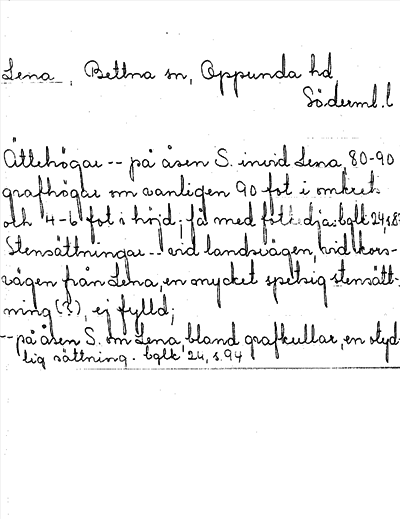 Lena, Bettna sn, Oppunda hd
Söderml. l
Ättehögar -- på åsen S. invid Lena, 80-90
grafhögar om vanligen 90 fot i omkrets
och 4-6 fot i höjd; få med fotkedja: bqlk 24, s.83
Stensättningar -- vid landsvägen, vid kors-
vägen från Lena, en mycket spetsig stensätt-
ning (?), ej fylld;
-- på åsen S. om Lena bland grafkullar, en otyd-
lig sättning. bqlk 24, s.94